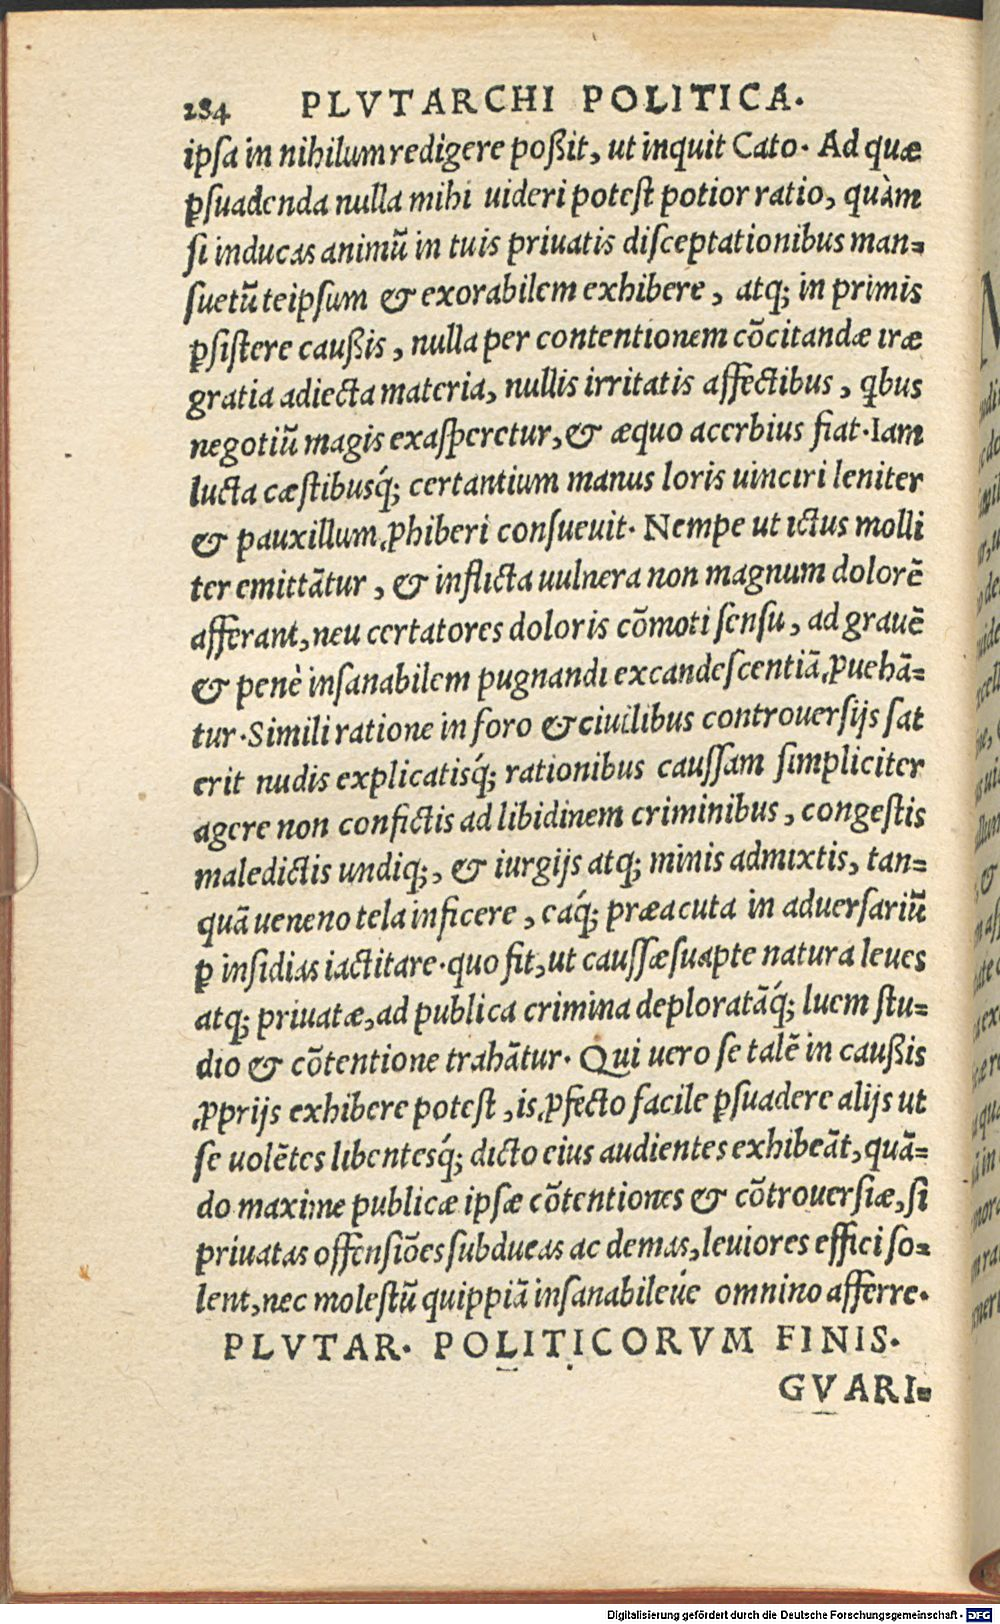 284 PLVTARCHI POLITICA.
ipsa in nihilum redigere poßit, ut inquit Cato. Ad quæ
ꝑsuadenda nulla mihi uideri potest potior ratio, quàm
si inducas animũ in tuis priuatis disceptationibus man=
suetũ teipsum & exorabilem exhibere, atq; in primis
ꝑsistere caußis, nulla per contentionem cõcitandæ iræ
gratia adiecta materia, nullis irritatis affectibus, qbus
negotiũ magis exasperetur, & æquo acerbius fiat. Iam
lucta cæstibusq́; certantium manus loris uinciri leniter
& pauxillum ꝓhiberi consueuit. Nempe ut ictus molli
ter emittãtur, & inflicta uulnera non magnum dolorẽ
afferant, neu certatores doloris cõmoti sensu, ad grauẽ
& penè insanabilem pugnandi excandescentiã ꝓuehã=
tur. Simili ratione in foro & ciuilibus controuersijs sat
erit nudis explicatisq́; rationibus caussam simpliciter
agere non confictis ad libidinem criminibus, congestis
maledictis undiq;, & iurgijs atq; minis admixtis, tan=
quã ueneno tela inficere, eaq́; præacuta in aduersariũ
ꝑ insidias iactitare. quo fit, ut caussæ suapte natura leues
atq; priuatæ, ad publica crimina deploratãq́; luem stu=
dio & cõtentione trahãtur. Qui uero se talẽ in caußis
ꝓprijs exhibere potest, is ꝓfecto facile ꝑsuadere alijs ut
se uolẽtes libentesq́; dicto eius audientes exhibeãt, quã=
do maxime publicæ ipsæ cõtentiones & cõtrouersiæ, si
priuatas offensiões subducas ac demas, leuiores effici so=
lent, nec molestũ quippiã insanabileúe omnino afferre.
PLVTAR. POLITICORVM FINIS.
GVARI=
Digitalisierung gefördert durch die Deutsche Forschungsgemeinschaft - DFG